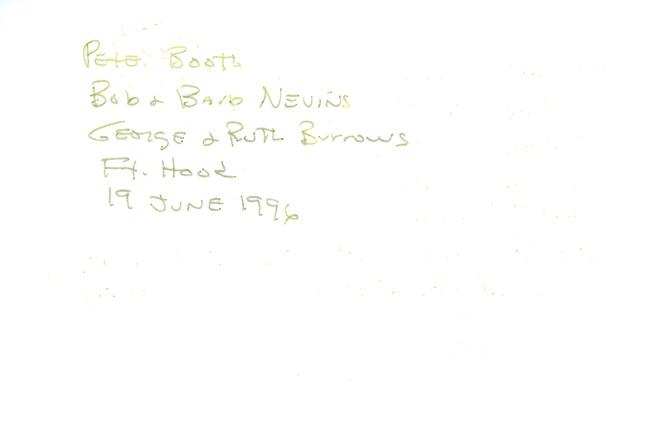 Pete Booth
Bob & Barb Nevins
George & Ruth Burrows
Ft. Hood
19 June 1996